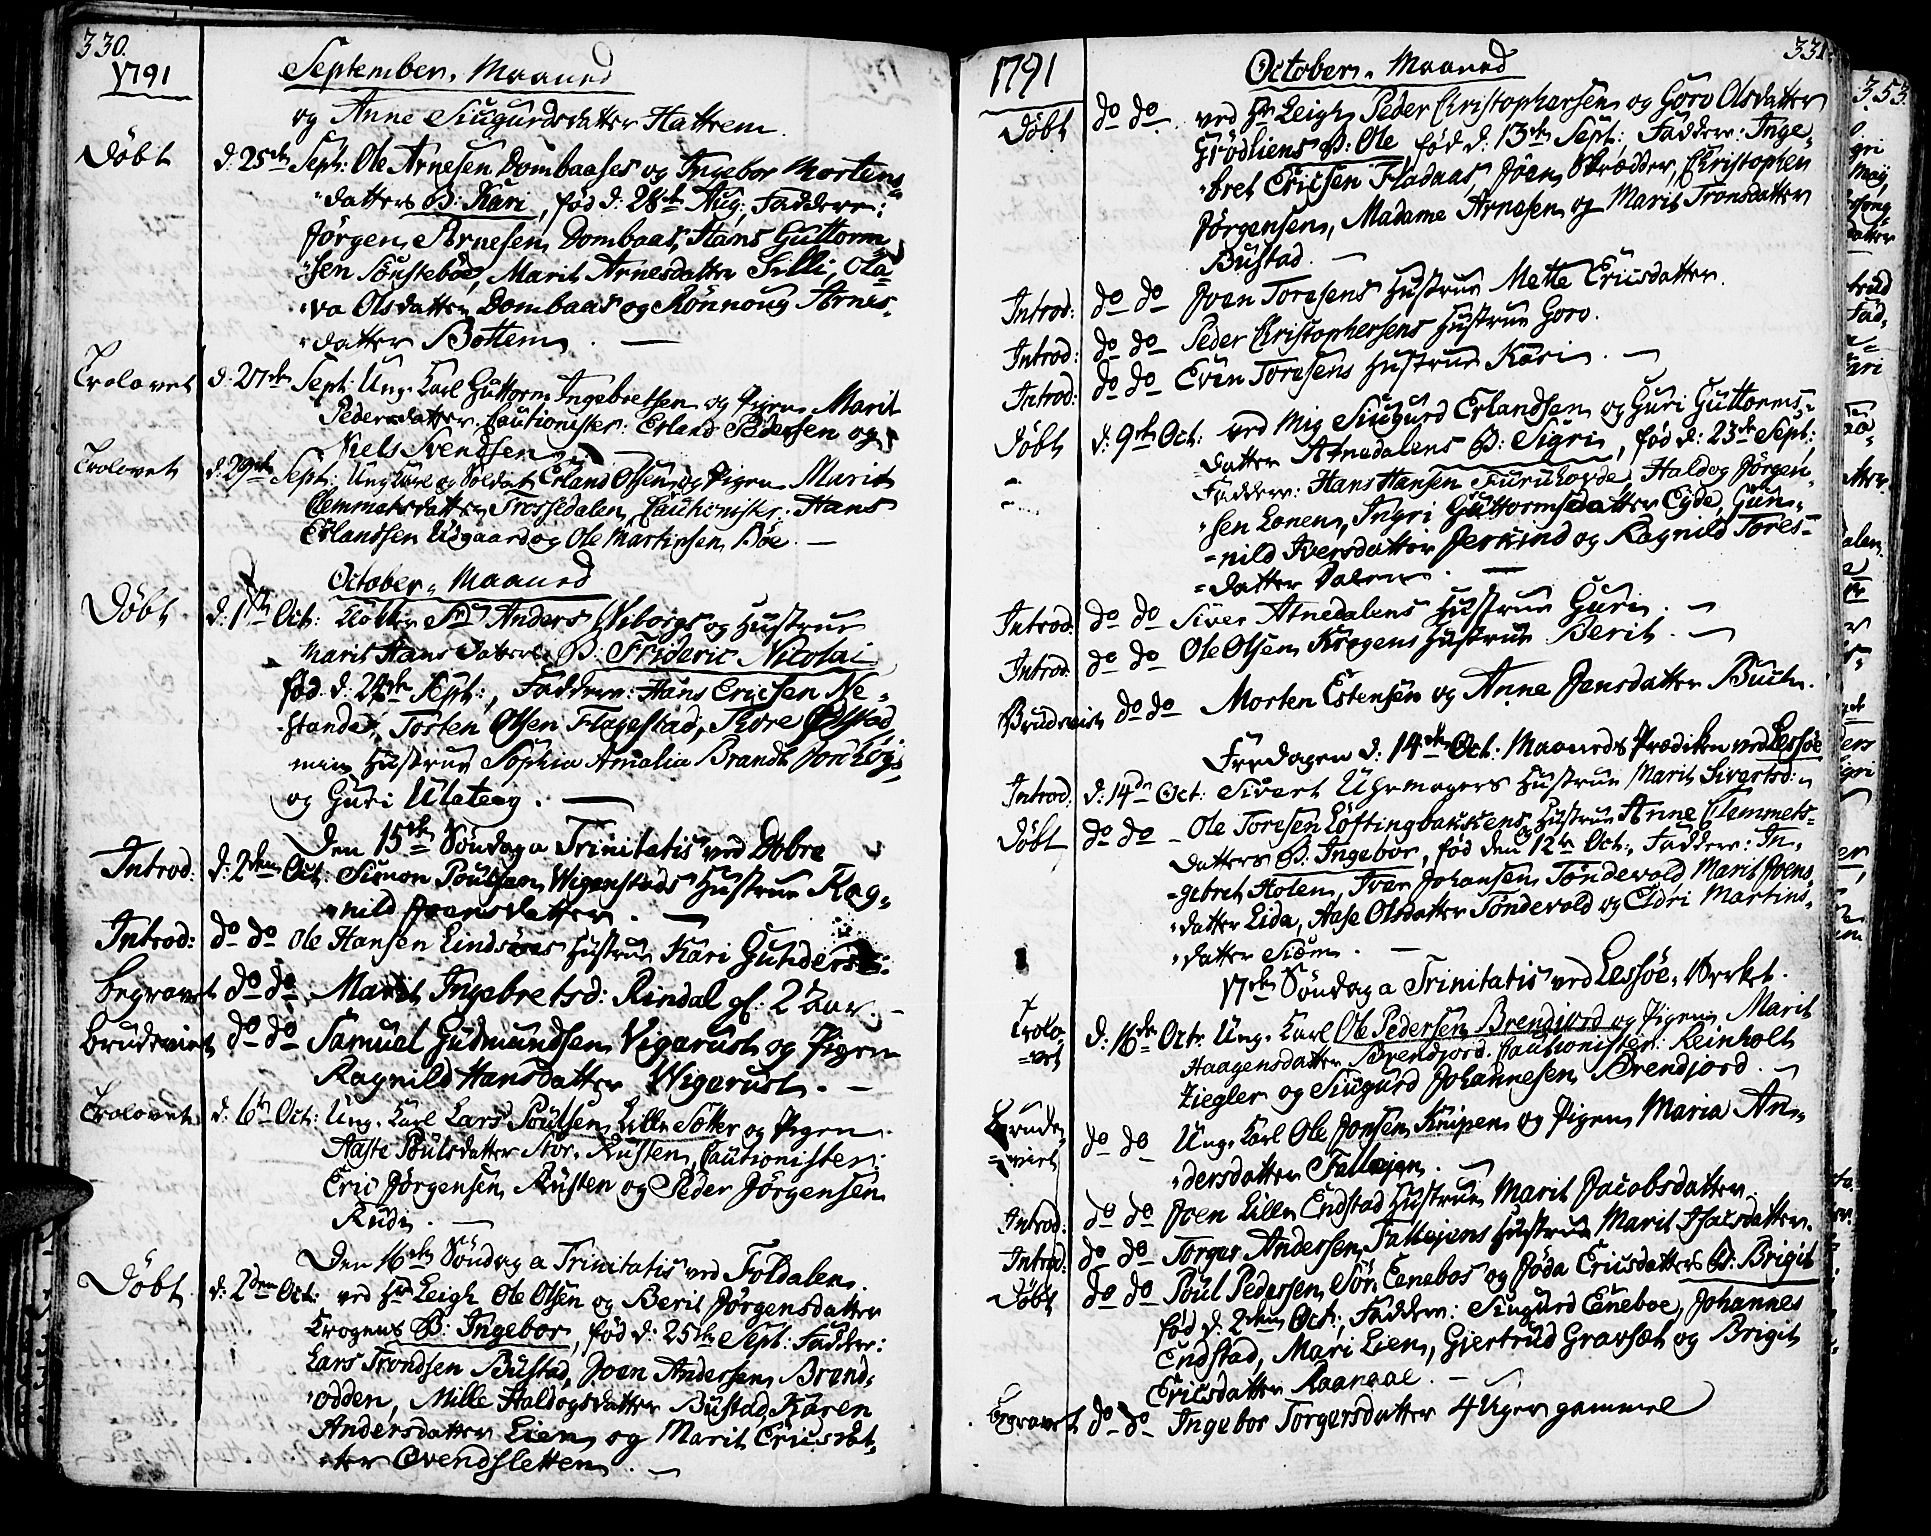 330.
1791
September. Maaned
og Anne Siugurdsdatter Hattrem
Döbt d: 25de Sept: Ole Arnesen Dombaases og Ingebor Mortens
datters B: Kari, föd d: 28de Aug: Faddere:
Jörgen Arnesen Dombaas, Hans Guttorm
sen Tousteböe, Marit Arnesdatter Silli, Ola
va Olsdatter Dombaas og Rönnoug Arnes
datter Bottem.
Trolovet d: 27de Sept: Ung Karl Guttorm Ingebretsen og Pigen Marit
Pedersdatter, Cautionister: Erland Pedersen og
Niels Svendsen
Trolovet d: 29de Sept: Ung Karl og Soldat Erland Olsen og Pigen Marit
Clemmetsdatter Trossedalen, Cautionister. Hans
Erlandsen Udgaard og Ole Martinsen Böe.
October. Maaned
Döbt d: 1ste Oct: Sr Anders Wiborgs og Hustrue
Marit Hans Datters B: Frideric Nicolai
föd. d: 22de Sept:, Faddere: Hans Ericsen Ne
stande, Torsten Olsen Flagestad, Thore Odstad,
min Hustrue Sophia Amalia Brandt
og Guri Ulateeg.
Den 15de Söndag a Trinitatis ved Dobre
Introd: d: 2den Oct: Simon Poulsen Wigenstads Hustrue Rag
nild Joensdatter.
Introd: do do Ole Hansen Lindsöes Hustrue Kari Gunders
Begravet do do Marit Ingebretsd: Rindal gl: 2 Aar.
Brudeviet do do Samuel Gudmundsen Vigerust og Pigen
Ragnild Hansdatter Wigerust.
Trolovet d: 6te Oct: Ung Karl Lars Poulsen Lille Sötter og Pigen
Aaste Poulsdatter Stor. Rusten, Cautionister:
Eric Jörgensen Rusten og Peder Jörgensen
Rudi.
Den 16de Söndag a Trinitatis ved Foldalen.
Döbt d: 2den Oct: ved Hr Leigh Ole Olsen og Berit Jörgensdatter
Krogens B: Ingebor, föd d: 25de Sept: Fadder:
Lars Trondsen Bustad, Joen Andersen Brend
odden, Mille Haldogsdatter Bustad, Karen
Andersdatter Lien og Marit Ericsdat
ter Övendsletten.
331.
1791
October. Maaned
Döbt do do ved Hr Leigh Peder Christophersen og Goro Olsdatter
Grödliens B: Ole, föd d: 13de Sept: Faddere: Inge
bret Ericsen Fladaas, Joen Skrædder, Christophen
Jörgensen, Madame Arnesen og Marit Tronsdatter
Bustad.
Introd: do do Joen Toresens Hustrue Mette Ericsdatter.
Introd: do do Peder Christophersens Hustrue Goro.
Introd: do do Even Toresens Hustrue Kari.
Döbt d: 9de Oct: ved Mig Siugurd Erlandsen og Guri Guttorms
datter Atnedalens B: Sigri, föd d: 23de Sept:
Faddere: Hans Hansen Furuhovde, Haldog Jörgen
sen Lonen, Ingri Guttormsdatter Eyde, Gun
nild Iversdatter Jerkind og Ragnild Tores
datter Dalen.
Introd: do do Siver Atnedalens Hustrue Guri.
Introd. do do Ole Olsen Krogens Hustrue Berit.
Brudeviet do do Morten Estensen og Anne Jensdatter Buch.
Fredagen d: 14de Oct: Maaneds Prædiken ved Lessöe
Introd: d: 14de Oct: Sivert Uhrmagers Hustrue Marit Sivertsd:
Döbt do do Ole Toresen Löftingbakkens Hustrue Anne Clemmets
datters B: Ingebor, föd den 12te Oct:, Faddere: In
gebret Holen, Iver Johansen Tondevold Marit Joens
datter Lida, Aase Olsdatter Tondevold og Eldri Martins
datter Siem.
17de Söndag a Trinitatis ved Lessöe. Værket.
Trolo
vet d: 16de Oct: Ung. Karl Ole Pedersen Brendjord og Pigen Marit
Haagensdatter Brendjord. Cautionister: Reinholt
Ziegler og Siugurd Johannesen Brendjord.
Brude
viet do do Ung. Karl Ole Jonsen Knipen og Pigen Maria An
dersdatter Tallejen.
Introd: do do Joen Lille Endstad Hustrue Marit Jacobsdatter.
Introd: do do Torger Andersen Tallejens Hustrue Marit Isaesdatter.
Döbt do do Poul Pedersen Sör Eenebos og Jöda Ericsdatters B: Brigit
föd d: 2den Oct:, Faddere: Siugurd Eeneboe, Johannes
Endstad, Mari Lien, Gjertrud Gravset og Brigit
Ericsdatter Raanaae.
Begravet do do Ingebor Torgersdatter 4 Uger gammel
353.